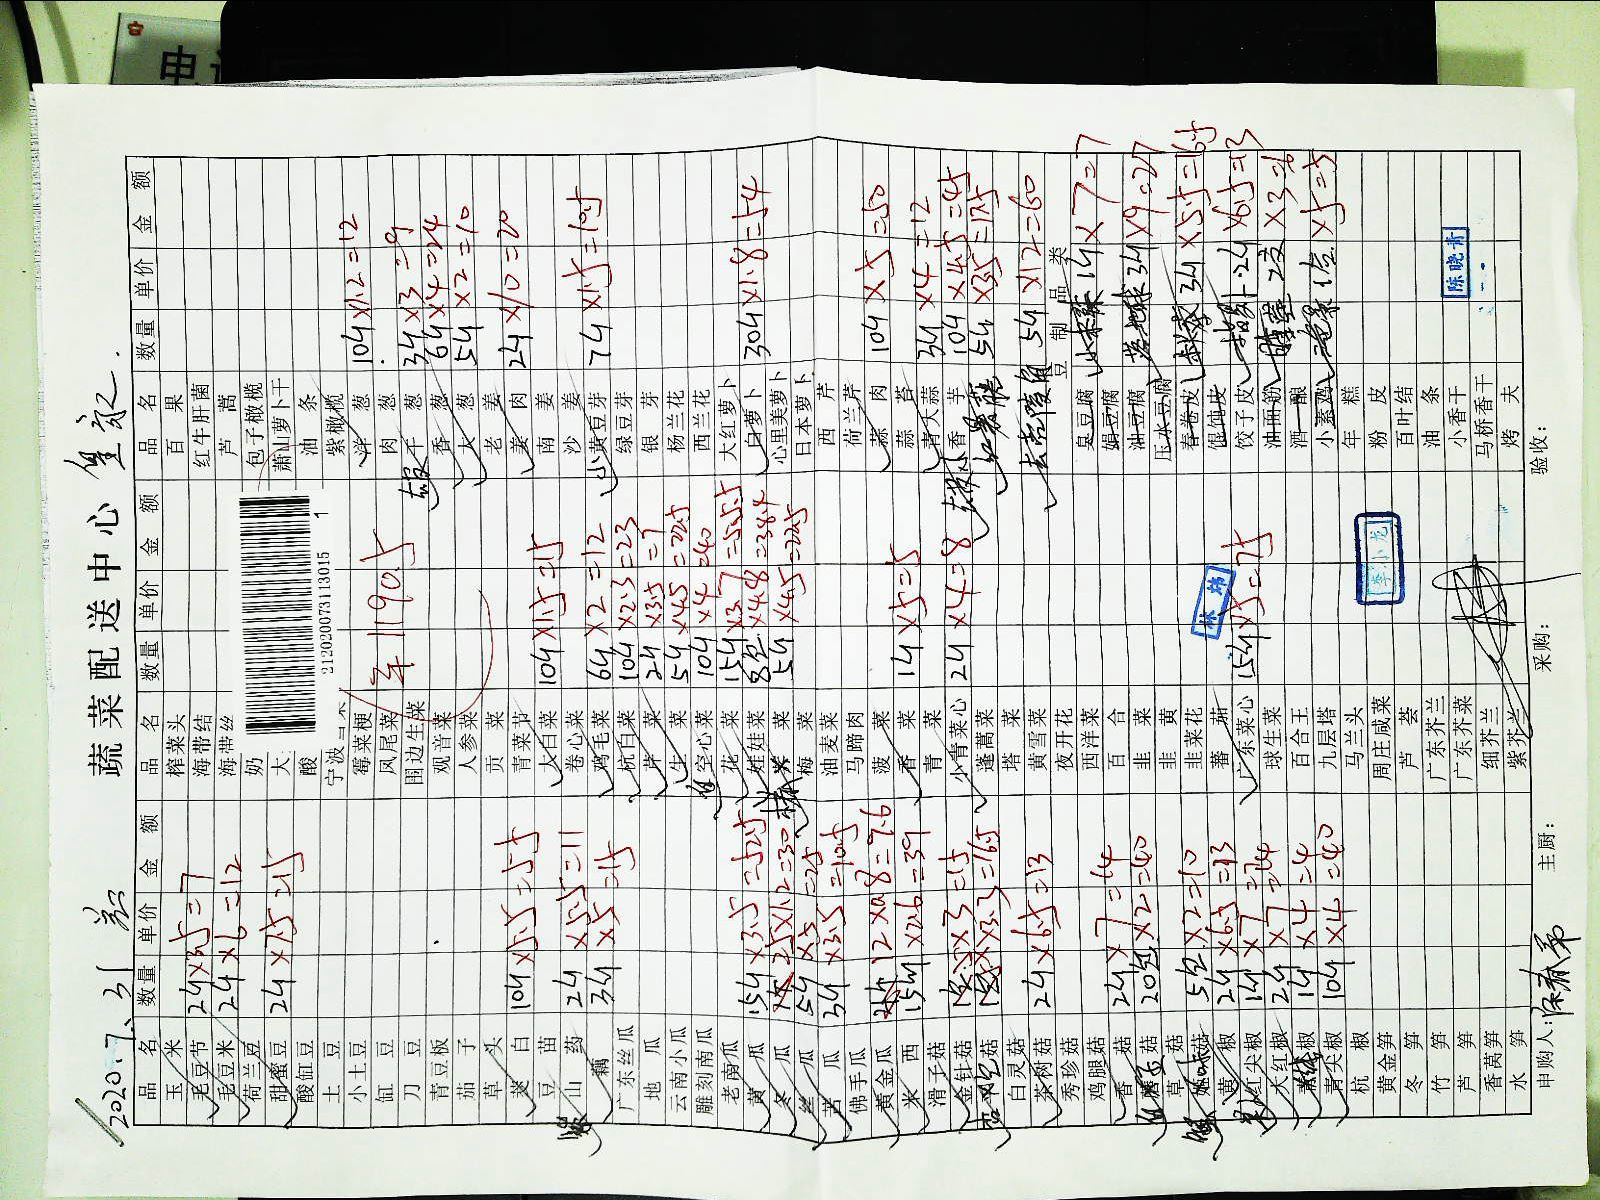 蔬菜配送中心
2020.7.31
21202007313015 1
年1190.5
品名 数量 单价 金额 品名 数量 单价 金额 品名 数量 单价 金额
玉米
毛豆节 2斤×3.5=7
毛豆米 2斤×6=12
荷兰豆
甜蜜豆 2斤×7.5=15
酸缸豆
土豆
小土豆
缸豆
刀豆
青豆板
茄子
草头
茭白 10斤×5.5=55
豆苗
山药 2斤×5.5=11
藕 3斤×5=15
广东丝瓜
地瓜
云南小瓜
雕刻南瓜
老南瓜
黄瓜 15斤×3.5=52.5
冬瓜 25×1.2=30
丝瓜 5斤×5=25
苦瓜 3斤×3.5=10.5
佛手瓜
黄金瓜 12×0.8=9.6
米西 15斤×2.6=39
滑子菇
金针菇 ×3=15
×3.3=16.5
白灵菇
茶树菇 2斤×6.5=13
秀珍菇
鸡腿菇
香菇 2斤×7=14
20包×2=40
草菇
5包×2=10
2斤×6.5=13
红尖椒 1斤×7=
大红椒 2斤×7=14
椒 1斤×4=4
青尖椒 10斤×4=40
杭椒
黄金笋
冬笋
竹笋
芦笋
香莴笋
水笋
榨菜头
海带结
海带丝
奶
大
酸
宁波
霉菜梗
凤尾菜
围边生菜
观音菜
人参菜
贡菜
青菜花
大白菜 10斤×1.5=15
卷心菜
鸡毛菜 6斤×2=12
杭白菜 10斤×2.3=23
芽菜 2斤×3.5=7
生菜 5斤×4.5=22.5
空心菜 10斤×4=40
花菜 15斤×3.7=55.5
娃娃菜 8包×4.8=38.4
菜 5斤×4.5=22.5
梅菜
油麦菜
马蹄肉
菠菜
香菜 1斤×5=5
青菜
小青菜心 2斤×4=8
蓬蒿菜
塔菜
黄雪菜
夜开花
西洋菜
百合
韭菜
韭黄
韭菜花
蕃茄
广东菜心 15斤×5=75
球生菜
百合王
九层塔
马兰头
周庄咸菜
芦荟
广东芥兰
广东芥菜
细芥兰
紫芥兰
百果
红牛肝菌
芦蒿
包子橄榄
萧山萝卜干
油条
紫橄榄
洋葱 10斤×1.2=12
肉葱
干葱 3斤×3=9
香葱 6斤×4=24
大葱 5斤×2=10
老姜
姜肉 2斤×10=20
南姜
沙姜
小黄豆芽 7斤×1.5=10.5
绿豆芽
银芽
杨兰花
西兰花
大红萝卜
白萝卜 30斤×1.8=54
心里美萝卜
日本萝卜
西芹
荷兰芹
蒜肉 10斤×5=50
蒜苔
青大蒜 3斤×4=12
小香芋 10斤×4.5=45
5斤×3.5=17.5
5斤×12=60
豆制品类
臭豆腐 1斤×7=7
娟豆腐
油豆腐 3斤×9=27
压水豆腐
春卷皮 3斤×5.5=16.5
馄饨皮
饺子皮 2斤×6.5=13
油面筋 ×3=6
酒酿
小素鸡 ×5=5
年糕
粉皮
百叶结
油条
小香干
马桥香干
烤夫
林炜
李小龙
陈晓青
申购人：
主厨：
采购：
验收：